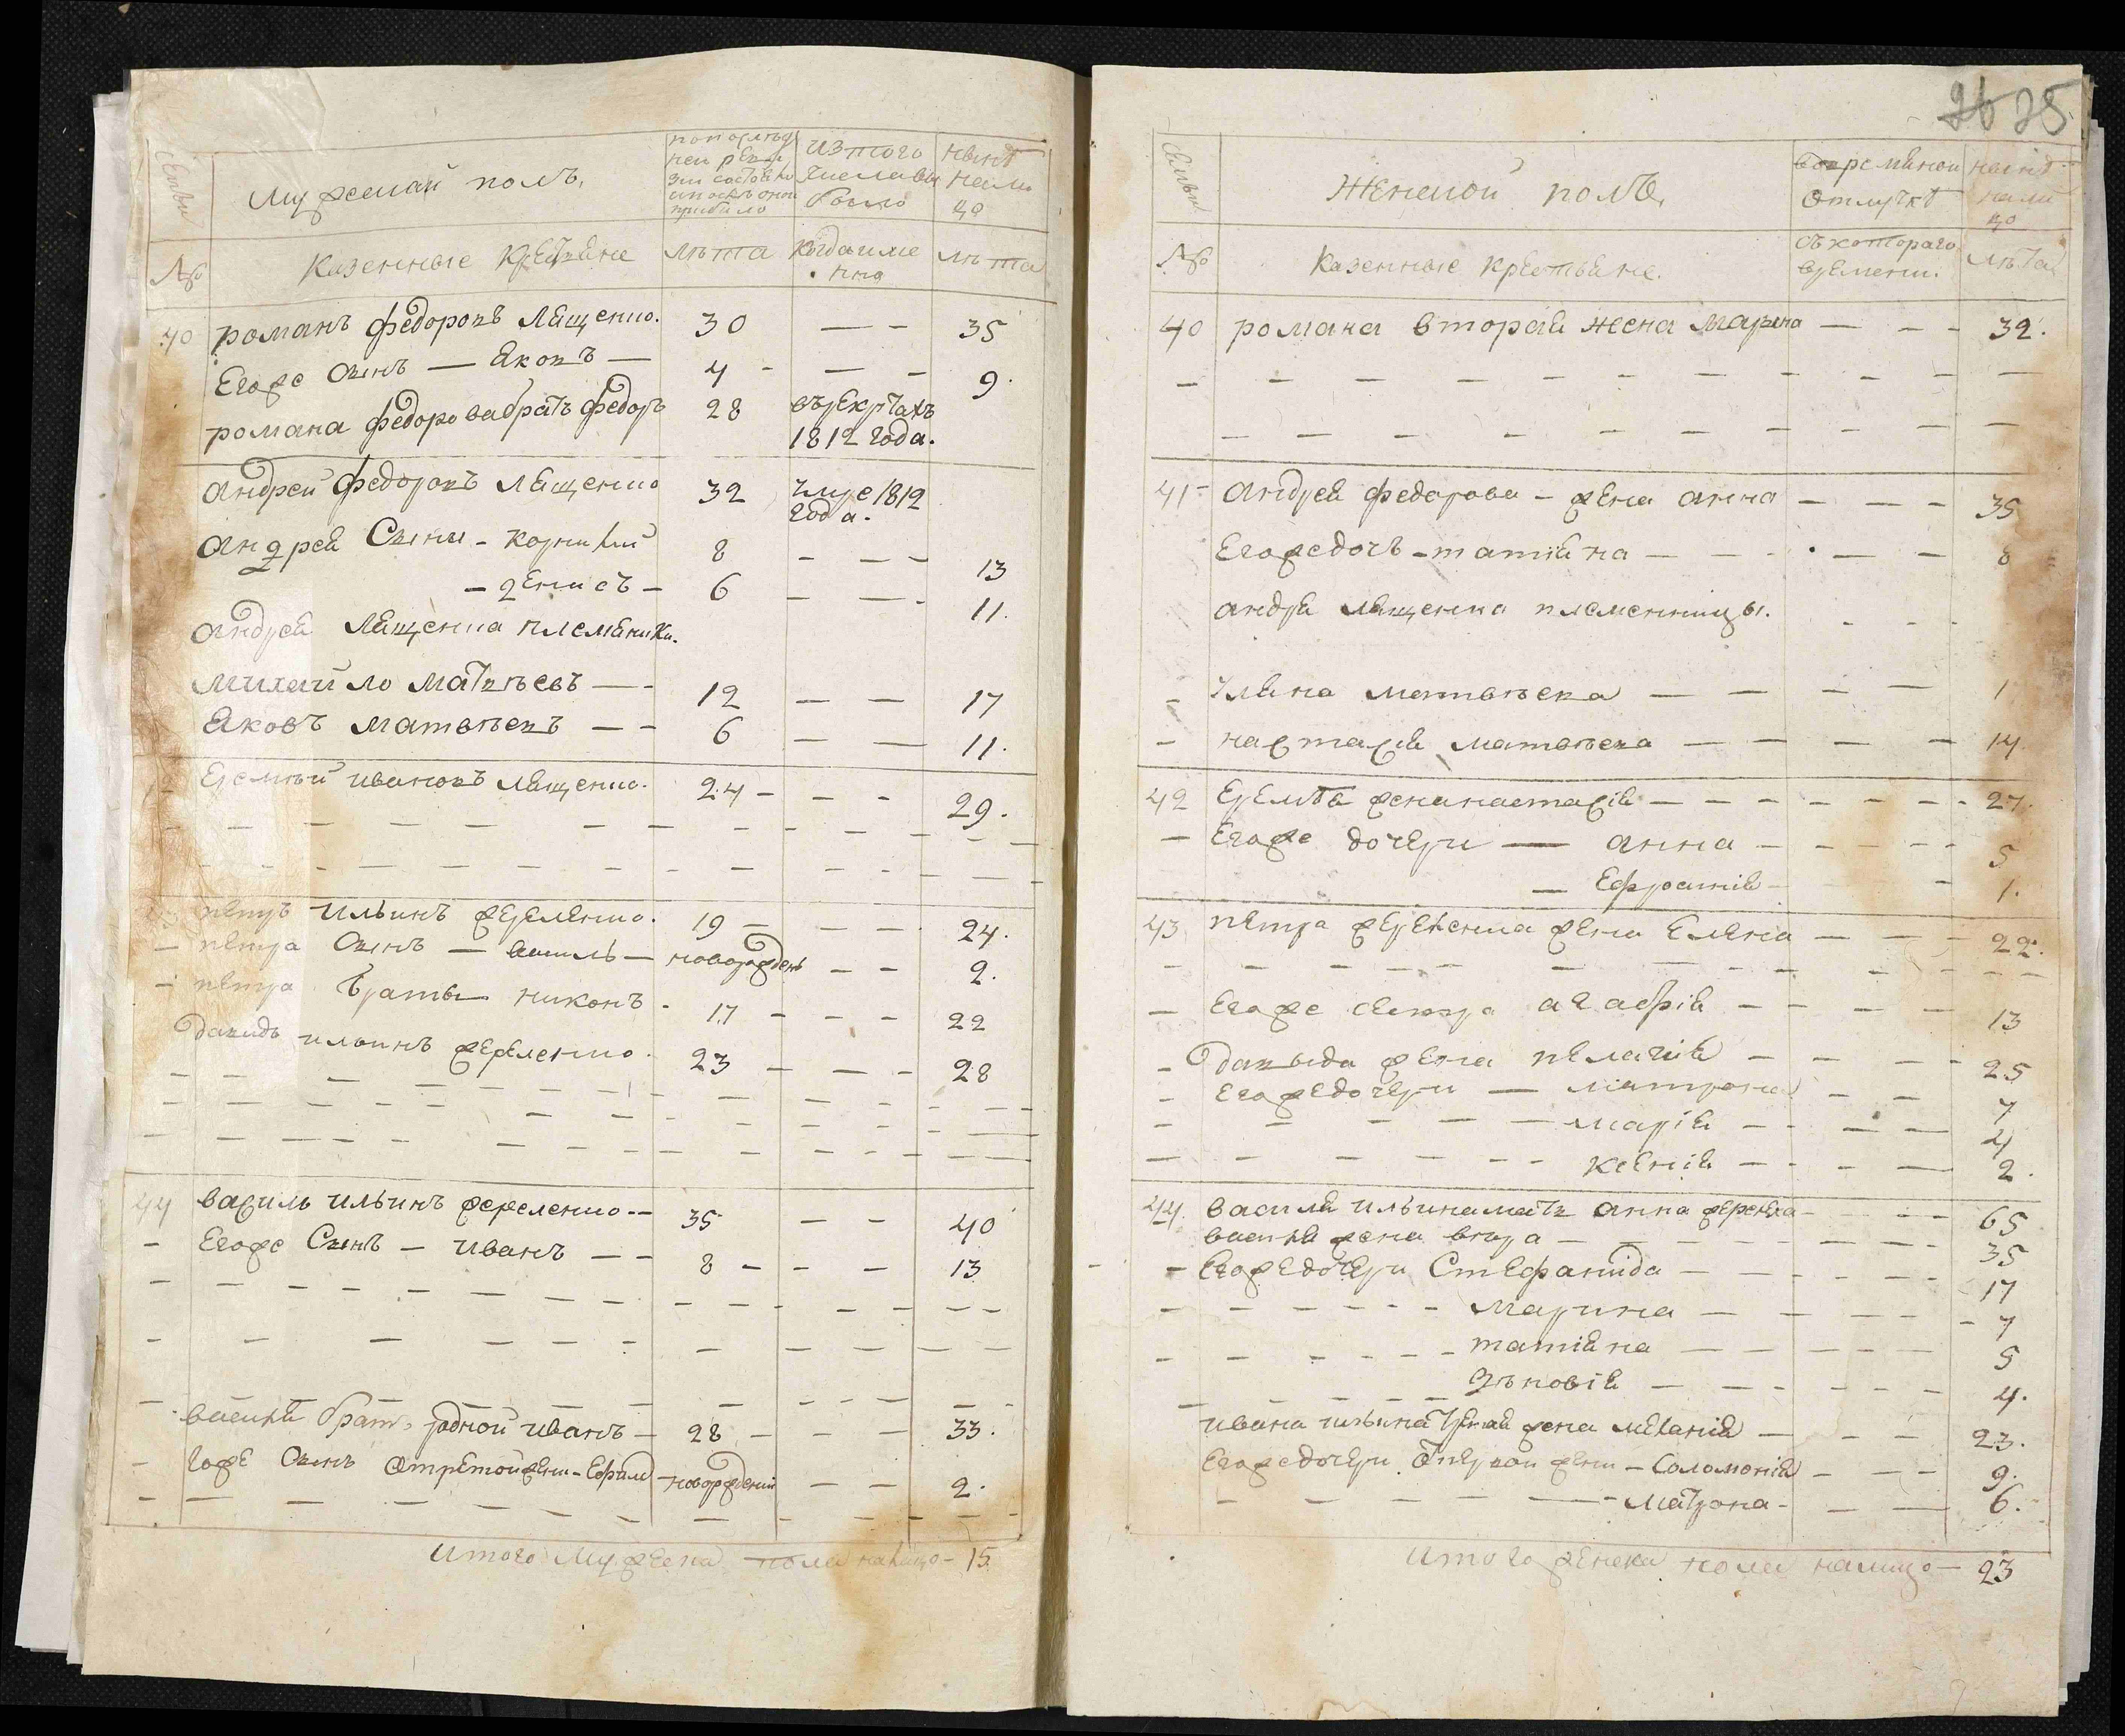 Семьи
Мужеский полъ.
по послѣд
ней реви
зии состояло
и послѣ оной
прибыло
Изъ того
числа вы
было
Нынѣ
нали
цо
№
Казенные крестьяне
лѣта
Когда име
нно
лѣта
40 романъ федоровъ Лященко. 30 — - 35
Егоже сынъ — Яковъ — 4 - — - 9.
романа федорова братъ федоръ 28 въ рекрутахъ
1812 года.
андрей федоровъ лященко 32 умре 1812
года.
андрея сыны - корнилий 8 - — - 13
- денисъ - 6 - — - 11.
андрея лященка племяники.
михайло матвѣевъ — - 12 — — 17
Яковъ матвѣевъ — - 6 — — 11.
42 Еремѣй ивановъ лященко. 24 - - - 29.
петръ ильинъ жережено. 19 - - - 24.
- петра сынъ — василь — новорожденъ - - 2.
- петра братъ никонъ - 17 - - - 22
давидъ ильинъ 23 - — - 28
44 василь ильинъ -- 35 - - 40
- Егоже сынъ - иванъ - - 8 - - - 13
василя братъ родной иванъ - 28 - - — 33.
- Егоже сынъ от третой жены - Ефимъ - новорожденый - - 2.
итого мужеска пола налицо - 15
26 25
Семьи
Женской полъ.
во временной
отлучкѣ
нынѣ
нали
цо
№
Казенные крестьяне.
съ котораго
времени.
лѣта
40 романа вторая жена марина — - - 32.
41 андрея федорова - жена анна — — - 35
Егоже дочь - татіяна — - - — - 8
андрея лященка племенницы.
- Уляна матвѣева — — - — 1
- настасія матвѣева — — — - 14
42 Еремѣя жена настасія — - - - - - - 27.
- Егоже дочери — анна - - - - - 5
— Ефросинія - - 1.
43 петра жена Елена — - - 22.
— Егоже сестра агафія - - — - 13
- давыда жена пелагия — - — - 25
- Егоже дочери — матрона - - 7
- - - - — марія - - — — 4
— - - - - - ксенія - - - — 2.
44. василя ильина мать анна - - - 65
василя жена вѣра — - - - - — - 35
- Егоже дочери Стефанида — - - - - - 17
- - - - - - марина — - - - - 7
- - - - - - татіяна — — - - - 5
— - - - - Зѣновія — - - - - - 4.
ивана ильина третая жена меланія — - - 23.
Егоже дочери от первой жены - Соломонія - - - 9.
- - - - — - матрона - — — 6.
итого женска пола налицо - 23